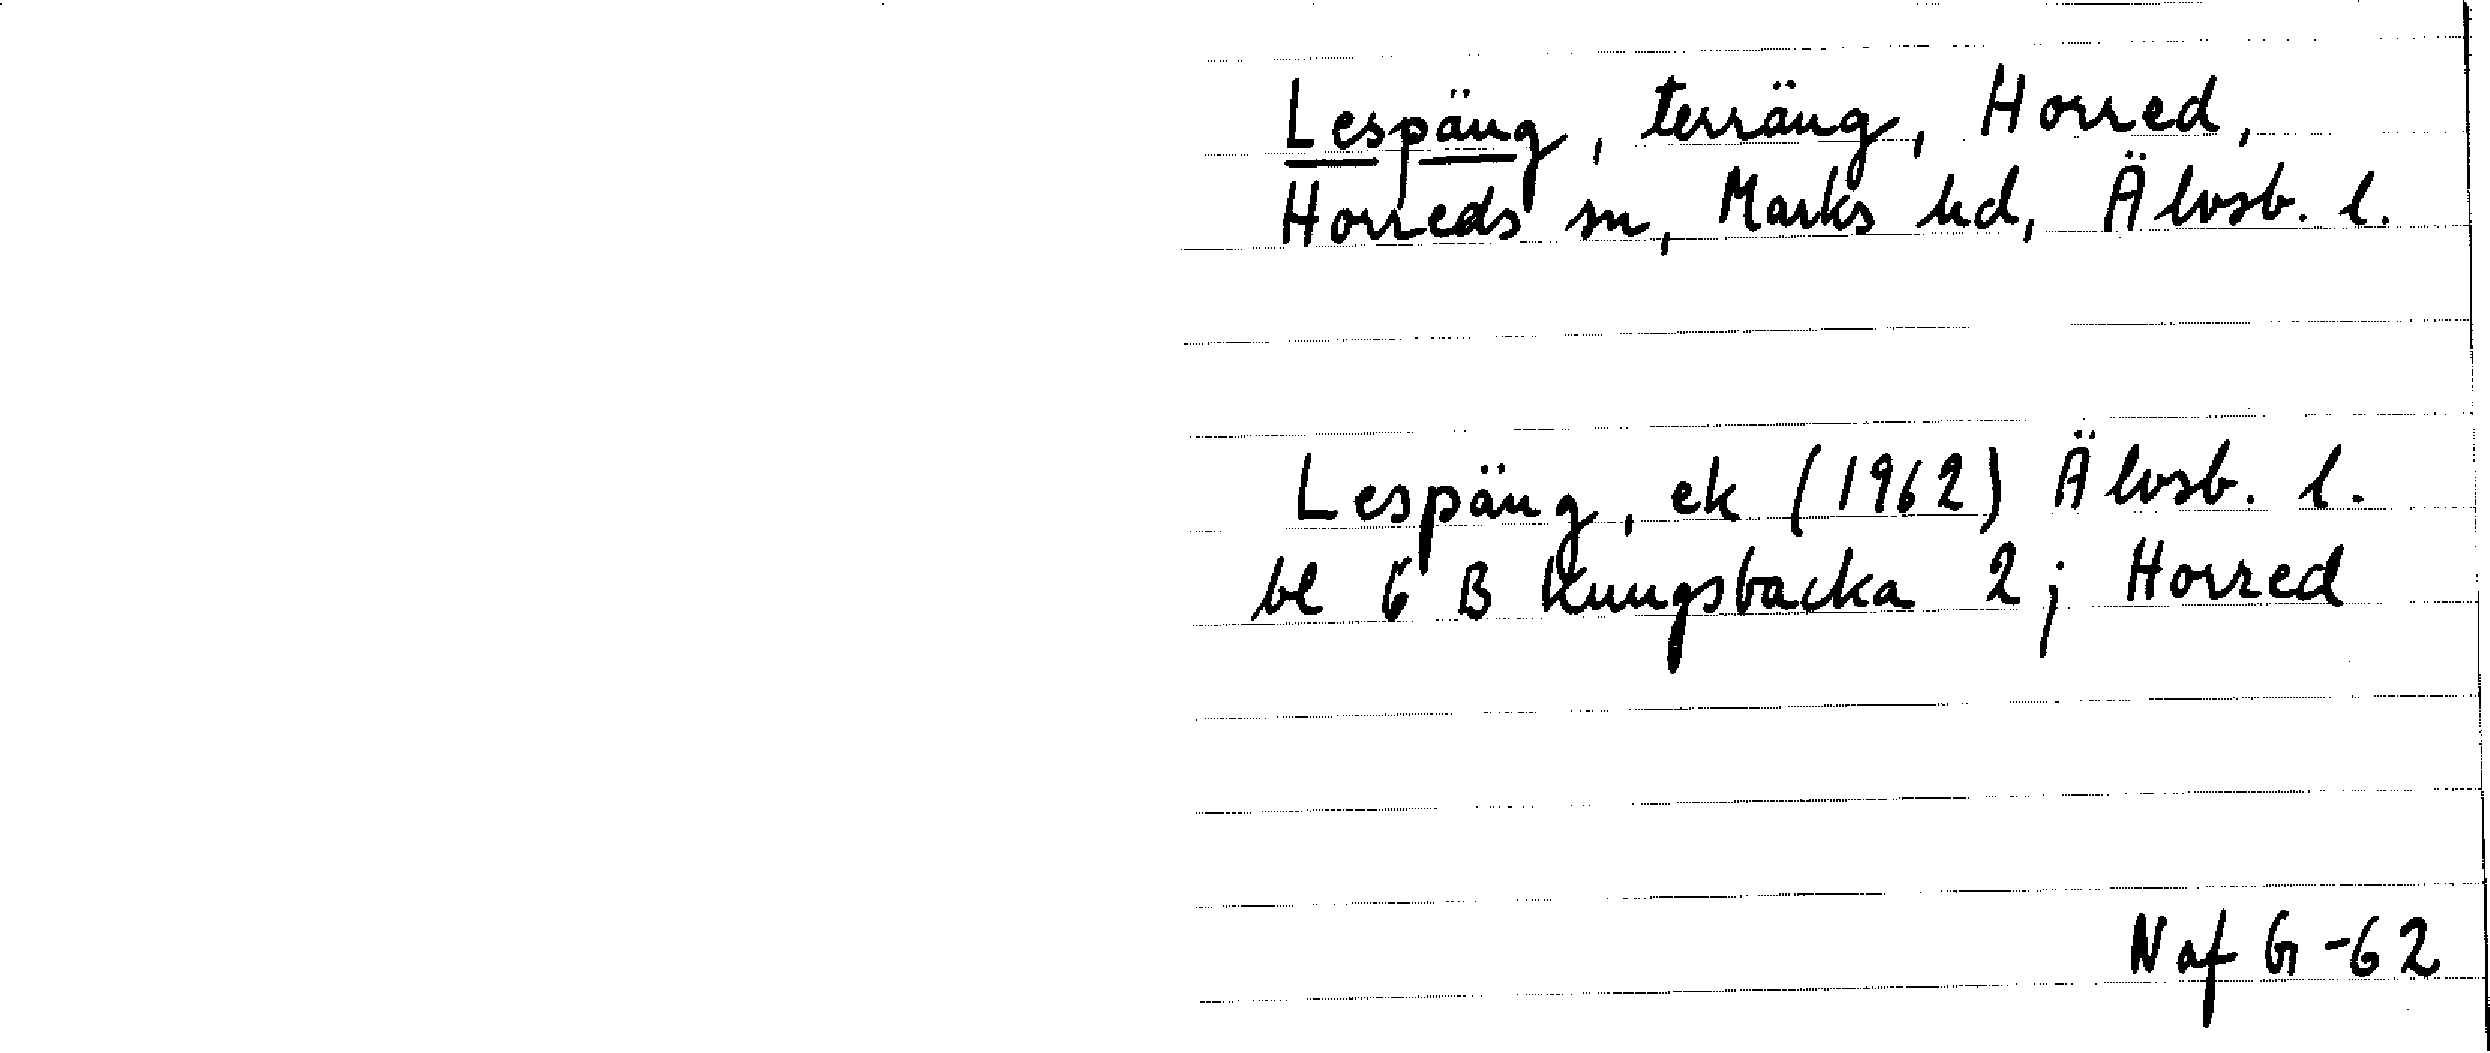 Lespäng, terräng, Horred,
Horreds sn, Marks hd, Älvsb. l.
Lespäng, ek (1962) Älvsb. l.
bl 6 B Kungsbacka 2j Horred
N af G -62